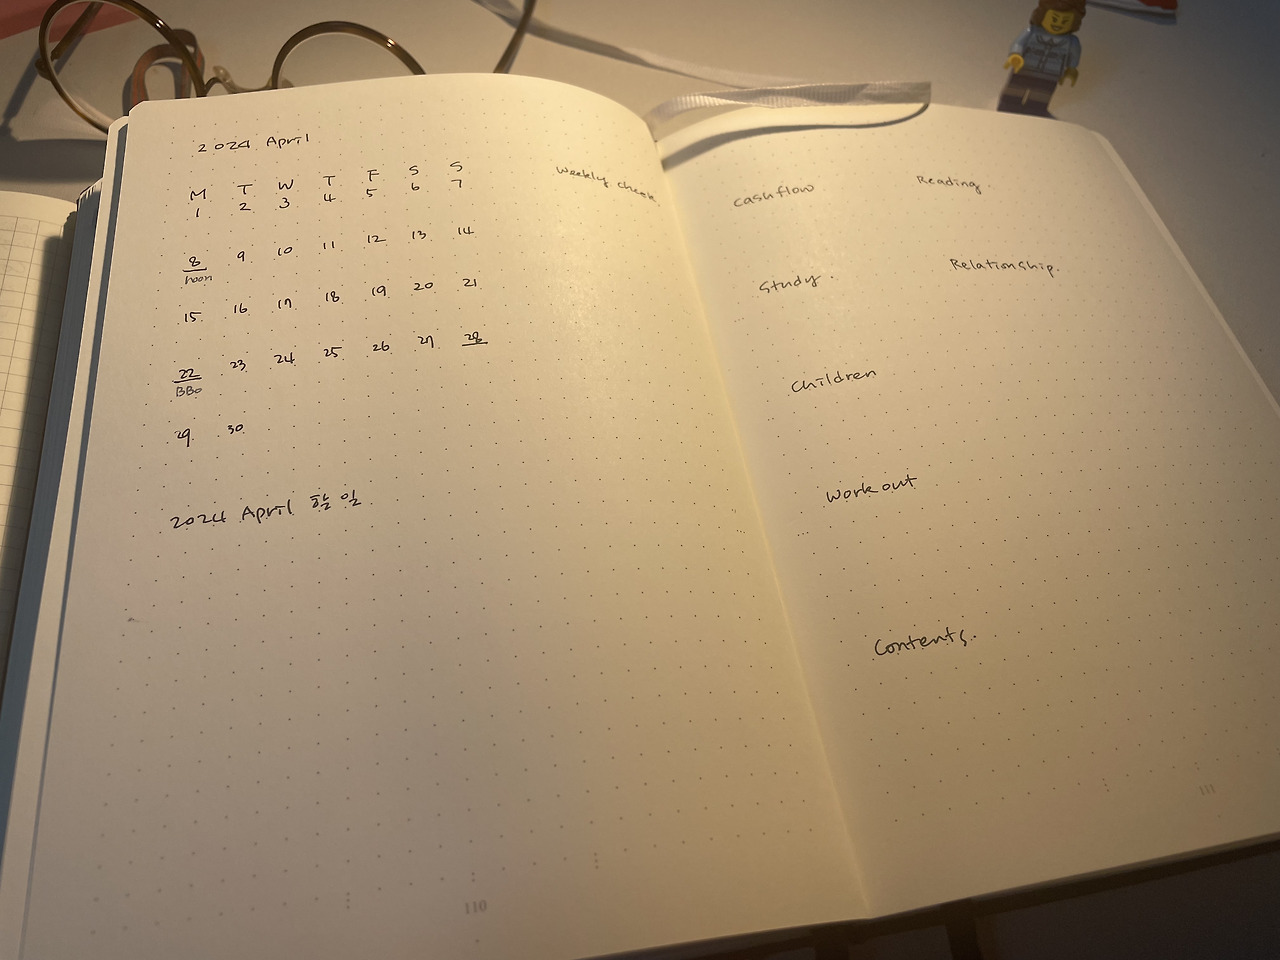 2024 April
M T W T F S S
1 2 3 4 5 6 7
8 9 10 11 12 13 14
hoon
15 16 17 18 19 20 21
22 23 24 25 26 27 28
BBo
29 30
2024 April 할 일
110
Weekly check.
cashflow
Reading.
Study.
Relationship.
children
Work out
Contents.
111